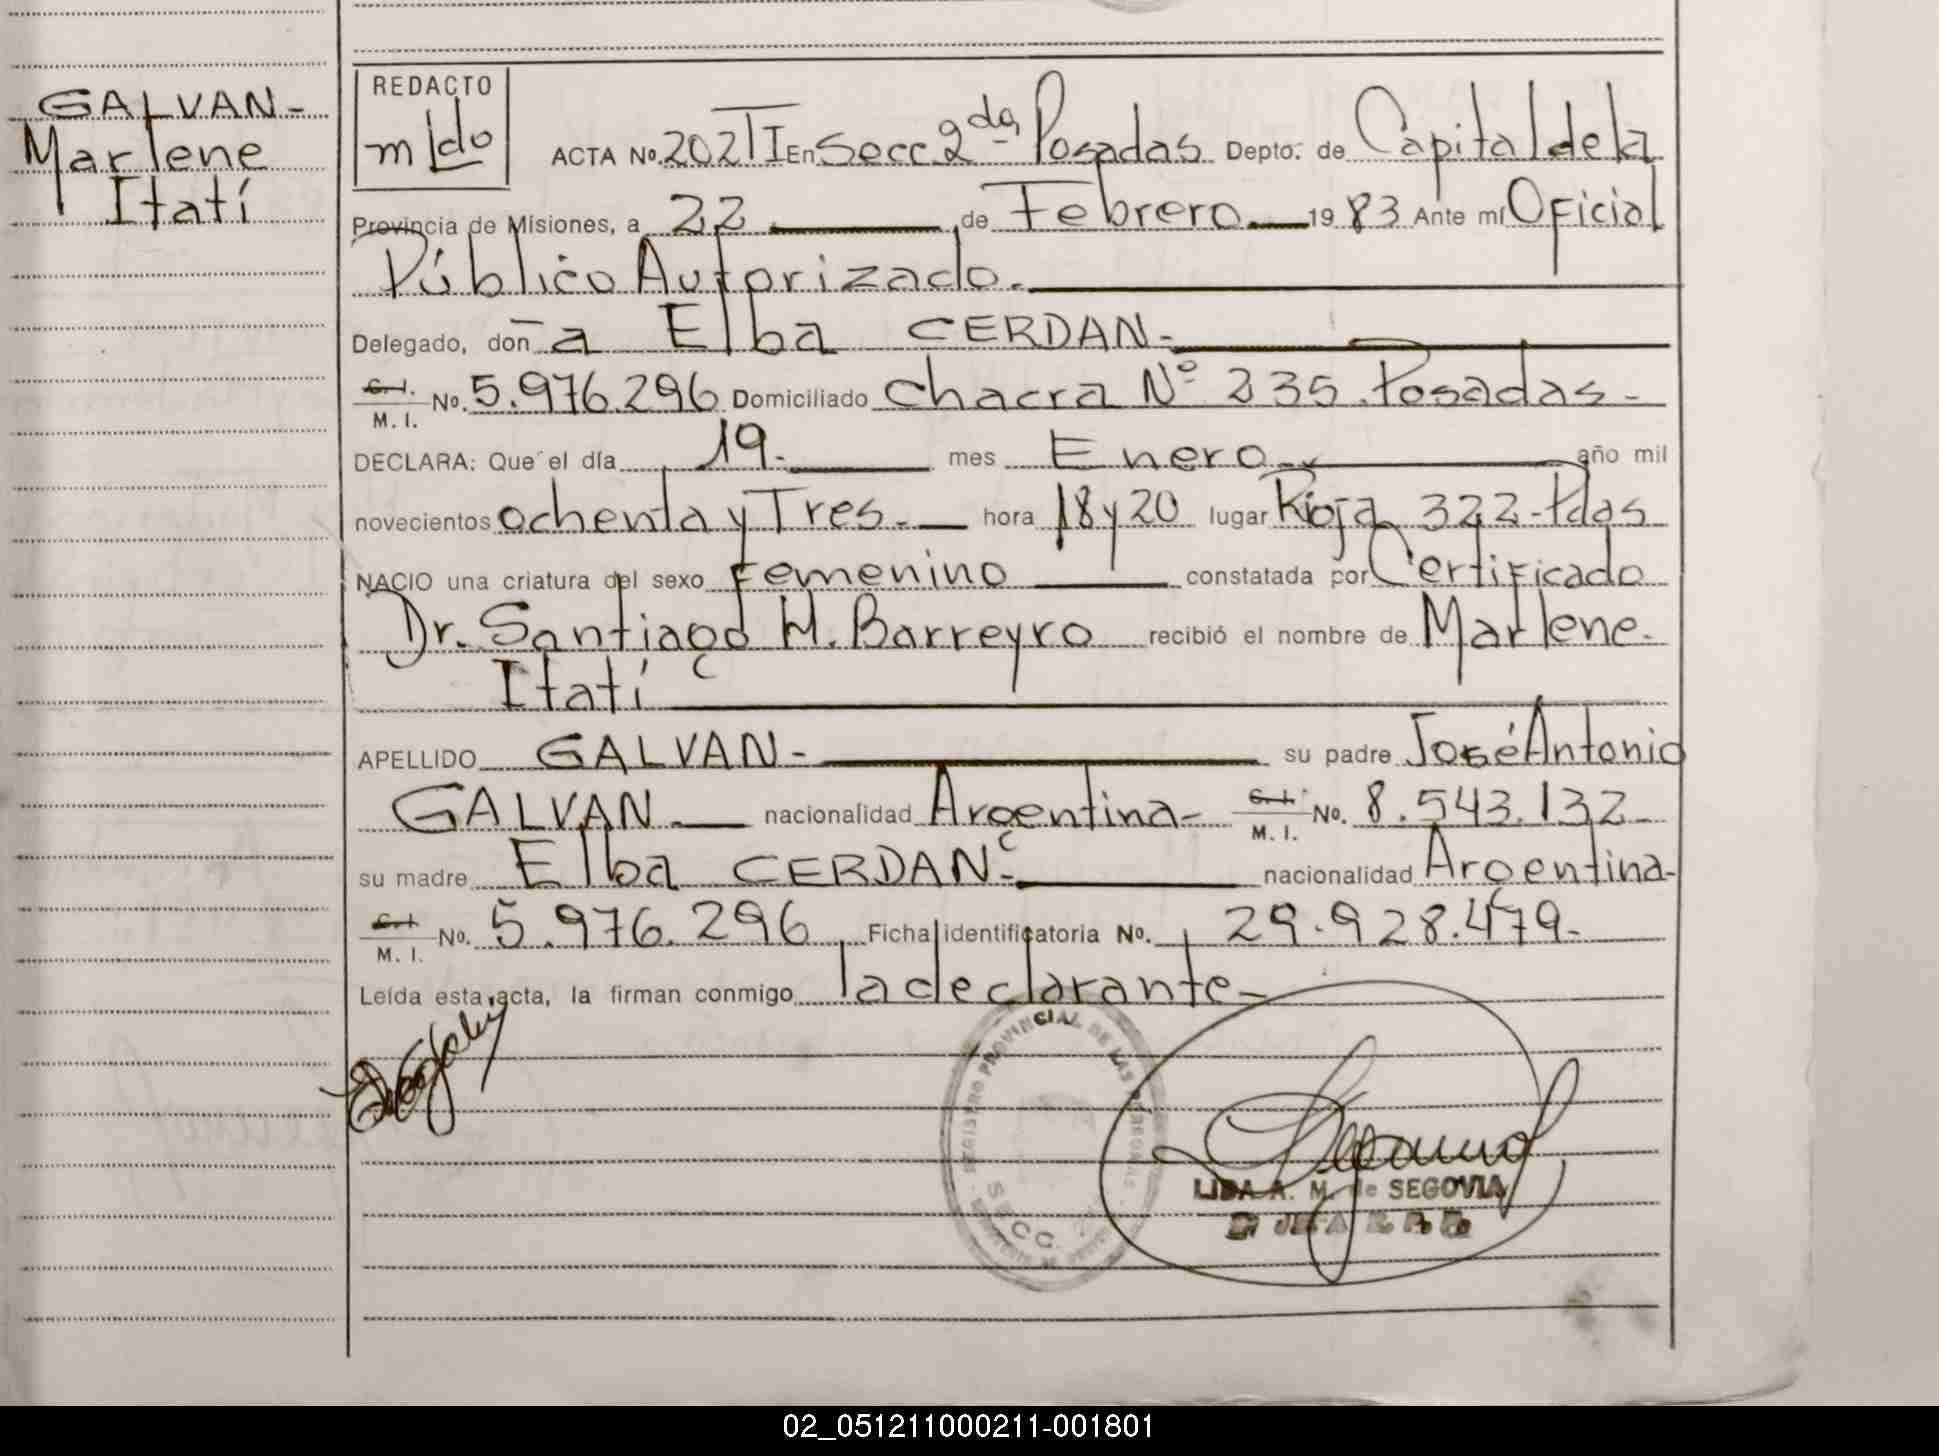 GALVAN-
Marlene
Itatí
REDACTO
m/do
ACTA No. 202 TI En Secc 2da Posadas Depto. de Capital de la
Provincia de Misiones, a 22 de Febrero 19 83 Ante mí Oficial
Público Autorizado.
Delegado, don̄ a Elba CERDAN-
C.I. M.I. No. 5.976.296 Domiciliado Chacra Nº 235 Posadas-
DECLARA: Que el día 19- mes Enero- año mil
novecientos ochenta y Tres- hora 18 y 20 lugar Rioja 322-Pdas
NACIO una criatura del sexo Femenino constatada por Certificado
Dr. Santiago H. Barreyro recibió el nombre de Marlene-
Itatí
APELLIDO GALVAN- su padre José Antonio
GALVAN nacionalidad Argentina- C.I. M.I. No. 8.543.132-
su madre Elba CERDAN- nacionalidad Argentina-
C.I. M.I. No. 5.976.296 Ficha identificatoria No. 29.928.479-
Leída esta acta, la firman conmigo la declarante-
REGISTRO PROVINCIAL DE LAS PERSONAS
SECC. 2ª
LIDA A. M. de SEGOVIA
JEFA R. P. P.
02_051211000211-001801